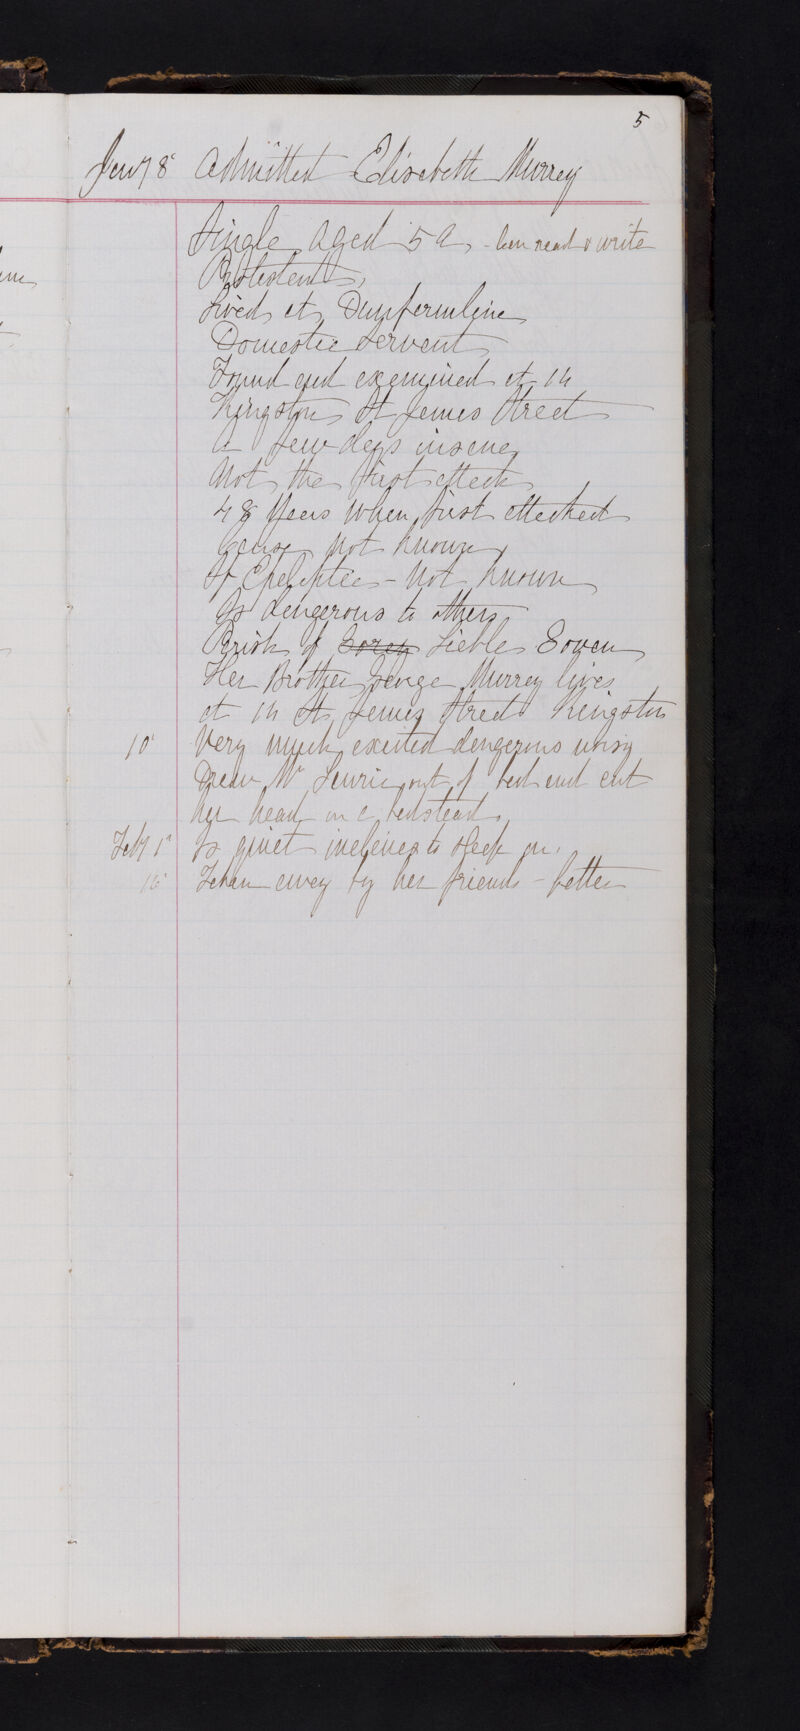 5
Jany 8 Admitted Elisabeth Murray
Single Aged 5 - Can read & write
Protestant
Lived at Dunfermline
Domestic Servant
Found and examined at 14
Kingston St James Street
a few days insane
Not the first attack
48 Years when first attacked
Cause Not known
If Epeleptic - Not known
Is dangerous to others
Parish of Govan Liable Govan
Her Brother George Murray lives
at 14 St James Street Kingston
10 Very much excited dangerous noisy
Drew Mrs out of bed and cut
her head on a bedstead
Feby 1st Is quiet inclines to sleep on.
Taken away by her friends - better